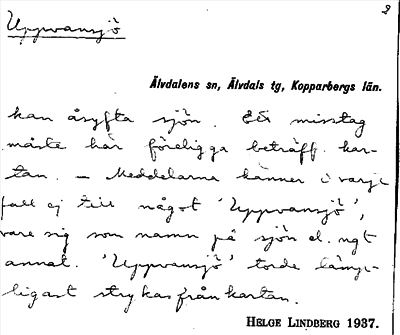 2
Uppvansjö
Älvdalens sn, Älvdals tg, Kopparbergs län.
kan åsyfta sjön. Ett misstag
måste här föreligga beträff. kar-
tan. – Meddelarna känner i varje
fall ej till något 'Uppvansjö',
vare sig som namn på sjön el. ngt
annat. 'Uppvansjö' torde lämp-
ligast strykas från kartan.
HELGE LINDBERG 1937.